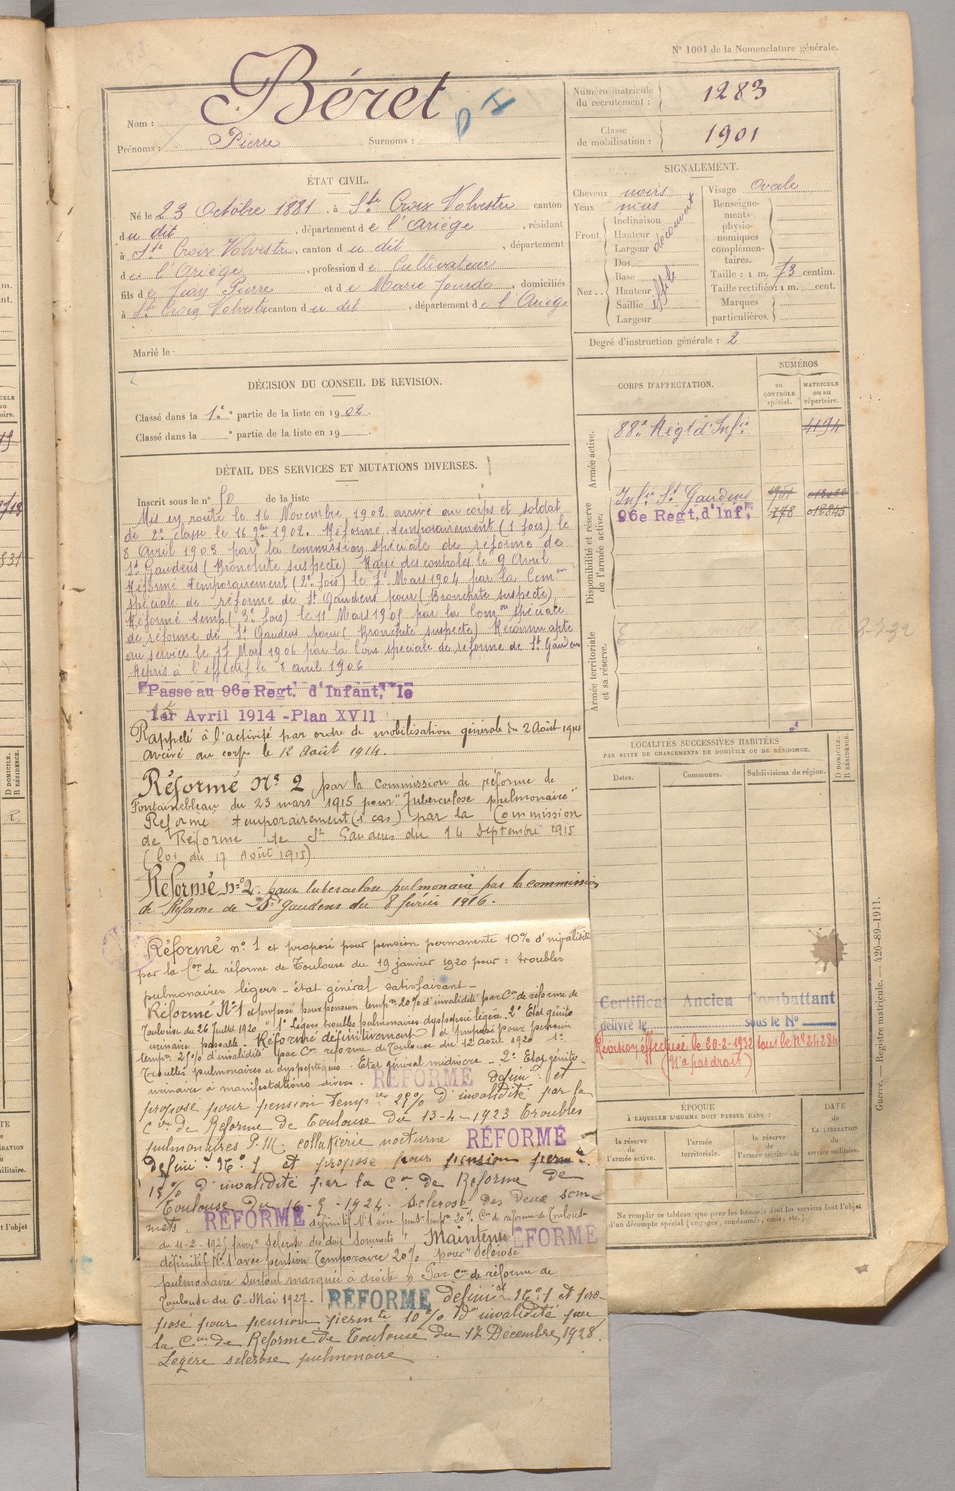 N° 1001 de la Nomenclature générale.
Nom : Béret
Prénoms : Pierre Surnoms :
Numéro matricule du recrutement : 1283
Classe de mobilisation : 1901
ÉTAT CIVIL.
Né le 23 Octobre 1881, à Ste Croix Volvestre canton
du dit, département de l'Ariège, résidant
à Ste Croix Volvestre, canton du dit, département
de l'Ariège, profession de Cultivateur
fils de Jean Pierre et de Marie Jourda, domiciliés
à Ste Croix Volvestre canton du dit, département de l'Ariège
Marié le
SIGNALEMENT.
Cheveux noirs
Yeux
Front
Inclinaison
Hauteur
Largeur
découvert
Nez
Dos
Base
Hauteur
Saillie
Largeur
effilé
Visage ovale
Renseignements physionomiques complémentaires.
Taille : 1 m. 73 centim.
Taille rectifiée : 1 m. cent.
Marques particulières.
Degré d'instruction générale : 2
DÉCISION DU CONSEIL DE REVISION.
Classé dans la 1e partie de la liste en 1902.
Classé dans la partie de la liste en 19
DÉTAIL DES SERVICES ET MUTATIONS DIVERSES.
Inscrit sous le n° 50 de la liste
Mis en route le 16 Novembre 1902 arrivé au corps et soldat
de 2e classe le 16 9bre 1902. Réformé temporairement (1 fois) le
8 Avril 1903 par la commission spéciale de réforme de
St Gaudens (Bronchite suspecte) Rayé des controles le 9 Avril
Réformé temporairement (2e fois) le 7 Mars 1904 par la Com on
spéciale de réforme de St Gaudens pour (Bronchite suspecte).
Réformé temp. (3e fois) le 11 Mars 1905 par la Com on spéciale
de réforme de St Gaudens pour (Bronchite suspecte) Reconnu apte
au service le 17 Mars 1906 par la Com spéciale de réforme de St Gaudens
Repris à l'effectif le 8 avril 1906
Passe au 96e Regt. d'Infant. le
1er Avril 1914 - Plan XVII
Rappelé à l'activité par ordre de mobilisation générale du 2 Août 1914
Arrivé au corps le 12 Août 1914.
Réformé N° 2 par la Commission de réforme de
Fontainebleau du 23 mars 1915 pour "Tuberculose pulmonaire"
Réformé temporairement (1 cas) par la Commission
de Réforme de St Gaudens du 14 Septembre 1915
(loi du 17 Août 1915)
Réformé n° 2. pour tuberculose pulmonaire par la commission
de Réforme de St Gaudens du 8 février 1916.
Réformé n° 1 et proposé pour pension permanente 10% d'invalidité
par la Con de réforme de Toulouse du 19 janvier 1920 pour : troubles
pulmonaires légers - état général satisfaisant -
Réformé N° 1 et proposé pour pension temp re 20% d'invalidité par Con de réforme de
Toulouse du 26 Juillet 1920 1° Légers troubles pulmonaires dyspepsie légère - 2° Etat génito
urinaire passable. Réformé définitivement 1 et proposé pour pension
temp re 25% d'invalidité par Con réforme de Toulouse du 12 août 1920 1°
Troubles pulmonaires et dyspeptiques. Etat général médiocre - 2° Etat génito-
urinaire à manifestations divers. RÉFORMÉ définif et
proposé pour pension temp re 25% d'invalidité par la
Con de Réforme de Toulouse du 13-4-1923 troubles
pulmonaires nocturne RÉFORMÉ
définif N° 1 et proposé pour pension perm te
15% d'invalidité par la Con de Réforme de
Toulouse du 1924. Sclérose des deux som-
mets. RÉFORMÉ définitif N° 1 avec pens. temp re 20% Con de réforme de Toulouse
du 11-2-1925 pour Sclérose des deux Sommets. Maintenu RÉFORMÉ
définitif N° 1 avec pension Temporaire 20% pour Sclérose
pulmonaire surtout marquée à droite. Par Con de réforme de
Toulouse du 6 Mai 1927. RÉFORMÉ définif N° 1 et pro-
posé pour pension perm te 10% d'invalidité par
la Con de Réforme de Toulouse du 17 Décembre 1928.
Légère sclérose pulmonaire
CORPS D'AFFECTATION.
NUMÉROS
au contrôle spécial.
matricule ou au répertoire.
Armée active.
88e Régt d'Inf ie 4194
Disponibilité et réserve de l'armée active.
Inf ie St Gaudens
96e Regt. d'Inf ie
Armée territoriale et sa réserve.
LOCALITÉS SUCCESSIVES HABITÉES
PAR SUITE DE CHANGEMENTS DE DOMICILE OU DE RÉSIDENCE.
Dates. Communes. Subdivisions de région.
D DOMICILE. R RÉSIDENCE.
Certificat Ancien Combattant
délivré le sous le N°
Révision effectuée le 20-2-1932 sous le N° 24284
(N'a pas droit)
EPOQUE
À LAQUELLE L'HOMME DOIT PASSER DANS :
la réserve de l'armée active.
l'armée territoriale.
la réserve de l'armée territoriale
DATE de la LIBÉRATION du service militaire.
Ne remplir ce tableau que pour les hommes dont les services font l'objet
d'un décompte spécial (engagés, omis, etc.).
Guerre. — Registre matricule. — 426-89-1911.